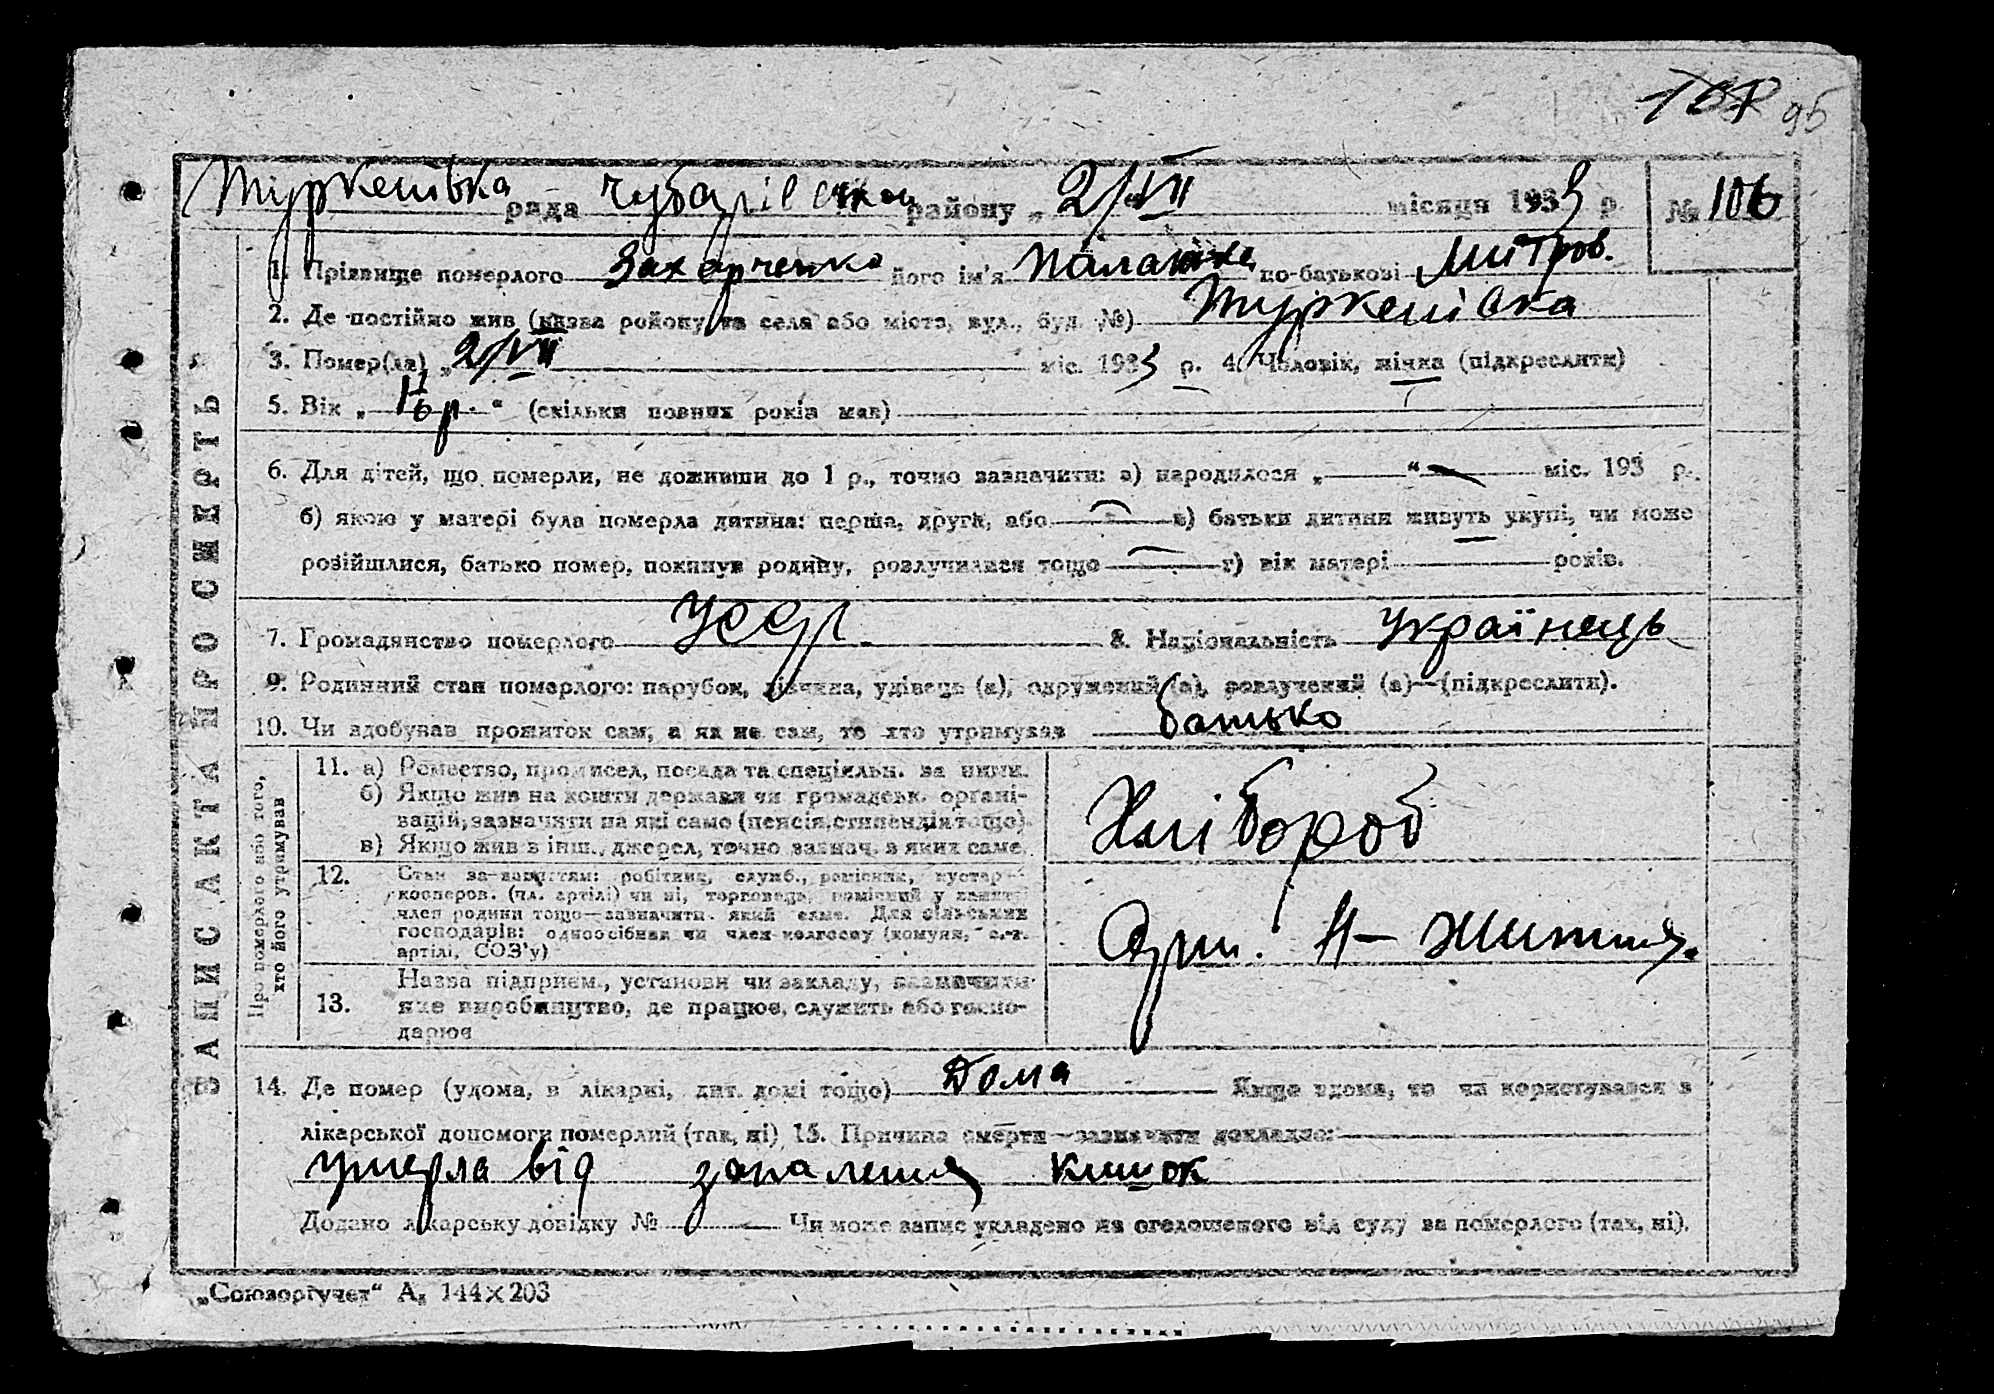 95
Туркенівка рада Чубарівськ району „ 2/VII місяця 1933 р. № 106
1. Прізвище померлого Захарченко його ім'я по-батькові Митров.
2. Де постійно жив (назва району та села або міста, вул., буд. №) Туркенівка
3. Помер(ла) „ 2/VII міс. 1933 р. 4. Чоловік, жінка (підкреслити)
5. Вік „ р. “ (скільки повних років мав)
6. Для дітей, що померли, не доживши до 1 р., точно зазначити: а) народилося „ “ міс. 193 р.
б) якою у матері була померла дитина: перша, друга, або в) батьки дитини живуть укупі, чи може
розійшлися, батько помер, покинув родину, розлучилися тощо г) вік матері років.
7. Громадянство померлого УССР 8. Національність українець
9. Родинний стан померлого: парубок, дівчина, удівець (а), одружений (а), розлучений (а)—(підкреслити).
10. Чи здобував прожиток сам, а як не сам, то хто утримував батько
ЗАПИС АКТА ПРО СМЕРТЬ
Про померлого або того,
хто його утримував
11. а) Ремество, промисел, посада та спеціяльн. за ними.
б) Якщо жив на кошти держави чи громадськ. органі-
зацій, зазначити на які само (пенсія, стипендія тощо).
в) Якщо жив з інш. джерел, точно зазнач. з яких саме.
Хлібороб
12. Стан за заняттям: робітник, служб., ремісник, кустар
кооперов. (чл. артілі) чи ні, торговець,
член родини тощо—зазначити який саме. Для сільських
господарів: одноосібник чи член колгоспу (комуни, с.-г.
артілі, СОЗ'у)
Арт. Н— Життя.
13. Назва підприєм., установи чи закладу, зазначити
яке виробництво, де працює, служить або госпо-
дарює
14. Де помер (удома, в лікарні, дит. домі тощо) Дома Якщо вдома, то чи користувався з
лікарської допомоги померлий (так, ні) 15. Причина смерти—зазначити докладно:
умерла від запалення кишок
Додано лікарську довідку № — Чи може запис укладено на оголошеного від суду за померлого (так, ні).
„Союзоргучет“ А₅ 144×203